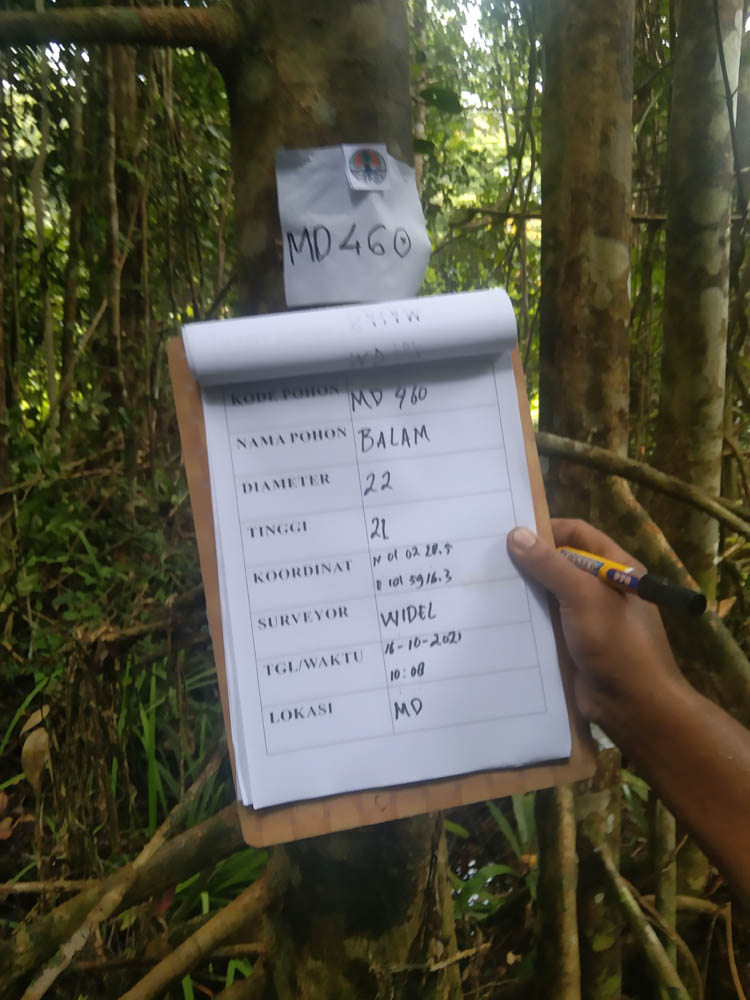 MD460
KODE POHON MD 460
NAMA POHON BALAM
DIAMETER 22
TINGGI 21
KOORDINAT N 01 02 28.5
E 101 59 16.3
SURVEYOR WIDEL
TGL/WAKTU 16-10-2021
10:08
LOKASI MD